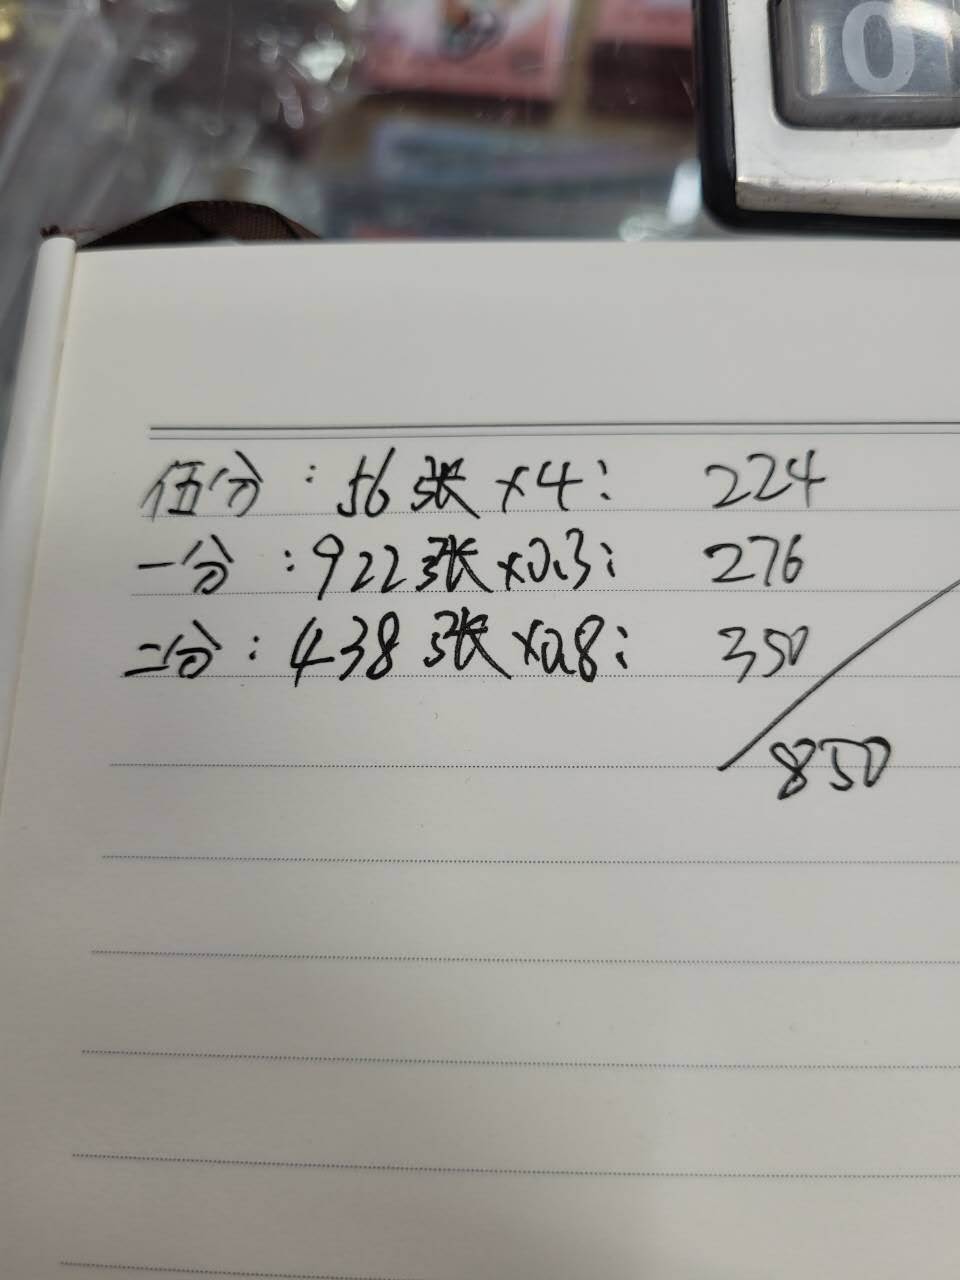 0
伍分：56张×4： 224
一分：922张×0.3： 276
二分：438张×0.8： 350
850